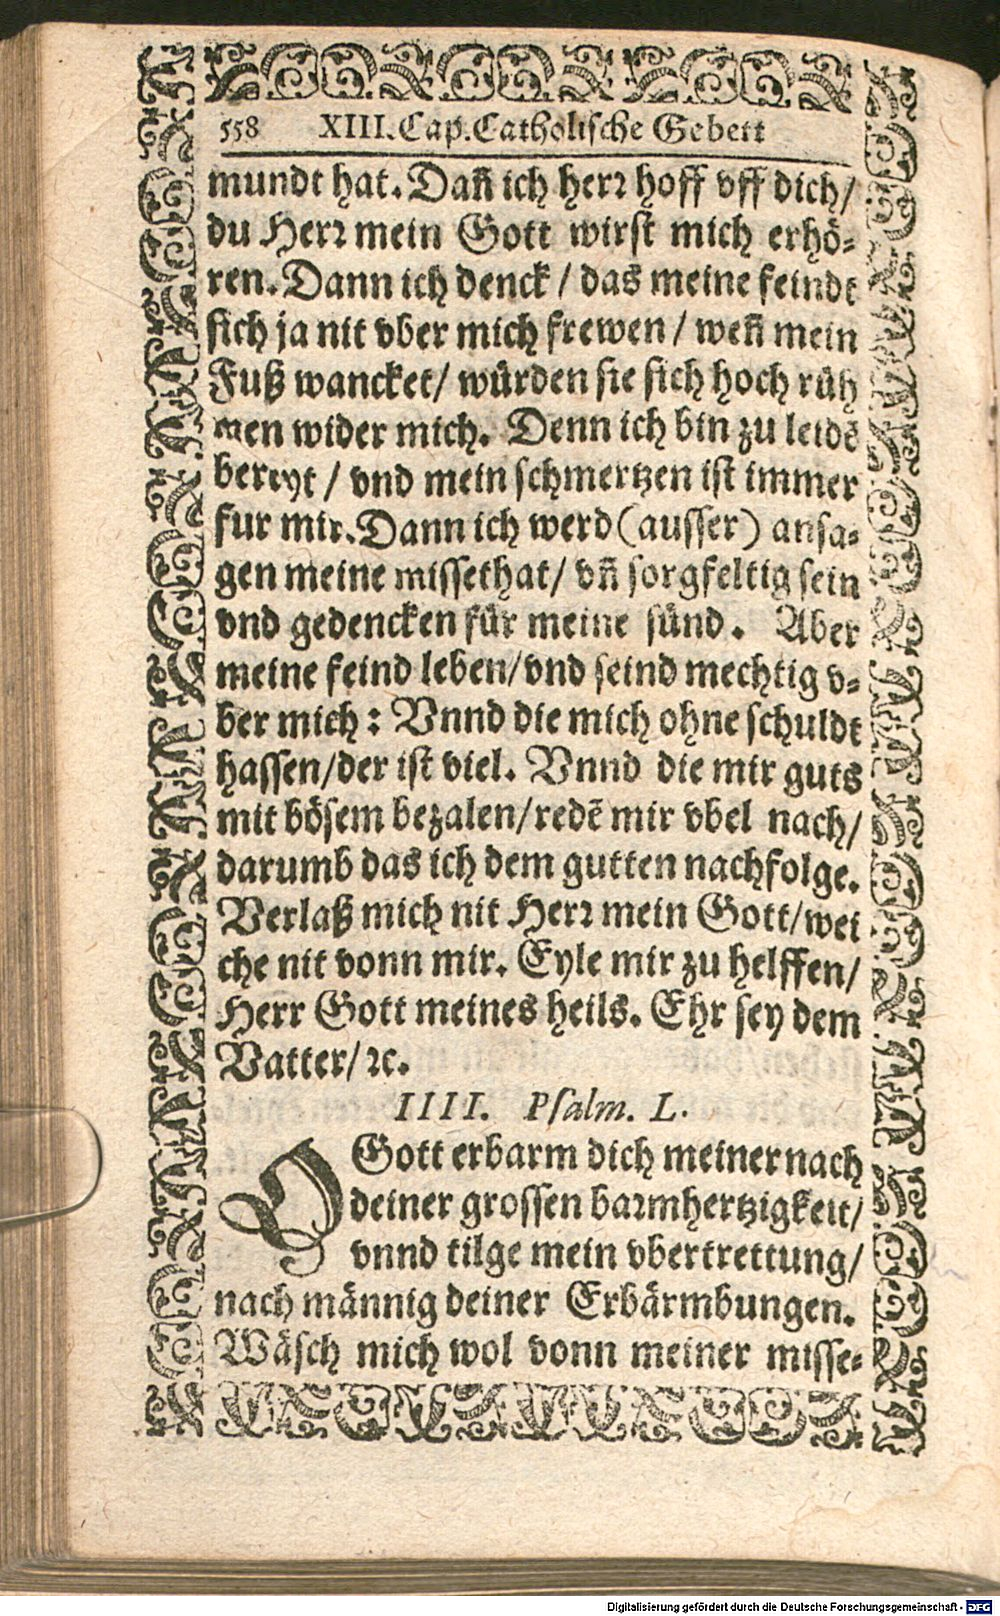 558 XIII. Cap. Catholische Gebett
mundt hat. Dañ ich herꝛ hoff vff dich/
du Herꝛ mein Gott wirst mich erhö⸗
ren. Dann ich denck / das meine feindt
sich ja nit vber mich frewen / weñ mein
Fuß wancket/ würden sie sich hoch rüh
men wider mich. Denn ich bin zu leidē
bereyt / vnd mein schmertzen ist immer
fur mir. Dann ich werd (ausser) ansa⸗
gen meine missethat/ vñ sorgfeltig sein
vnd gedencken für meine sünd. Aber
meine feind leben/ vnd seind mechtig v⸗
ber mich: Vnnd die mich ohne schuldt
hassen/ der ist viel. Vnnd die mir guts
mit bösem bezalen/ redē mir vbel nach/
darumb das ich dem gutten nachfolge.
Verlaß mich nit Herꝛ mein Gott/ wei
che nit vonn mir. Eyle mir zu helffen/
Herr Gott meines heils. Ehr sey dem
Vatter/ ꝛc.
IIII. Psalm. L.
O Gott erbarm dich meiner nach
deiner grossen baꝛmhertzigkeit/
vnnd tilge mein vbertrettung/
nach männig deiner Erbärmbungen.
Wäsch mich wol vonn meiner misse⸗
Digitalisierung gefördert durch die Deutsche Forschungsgemeinschaft - DFG